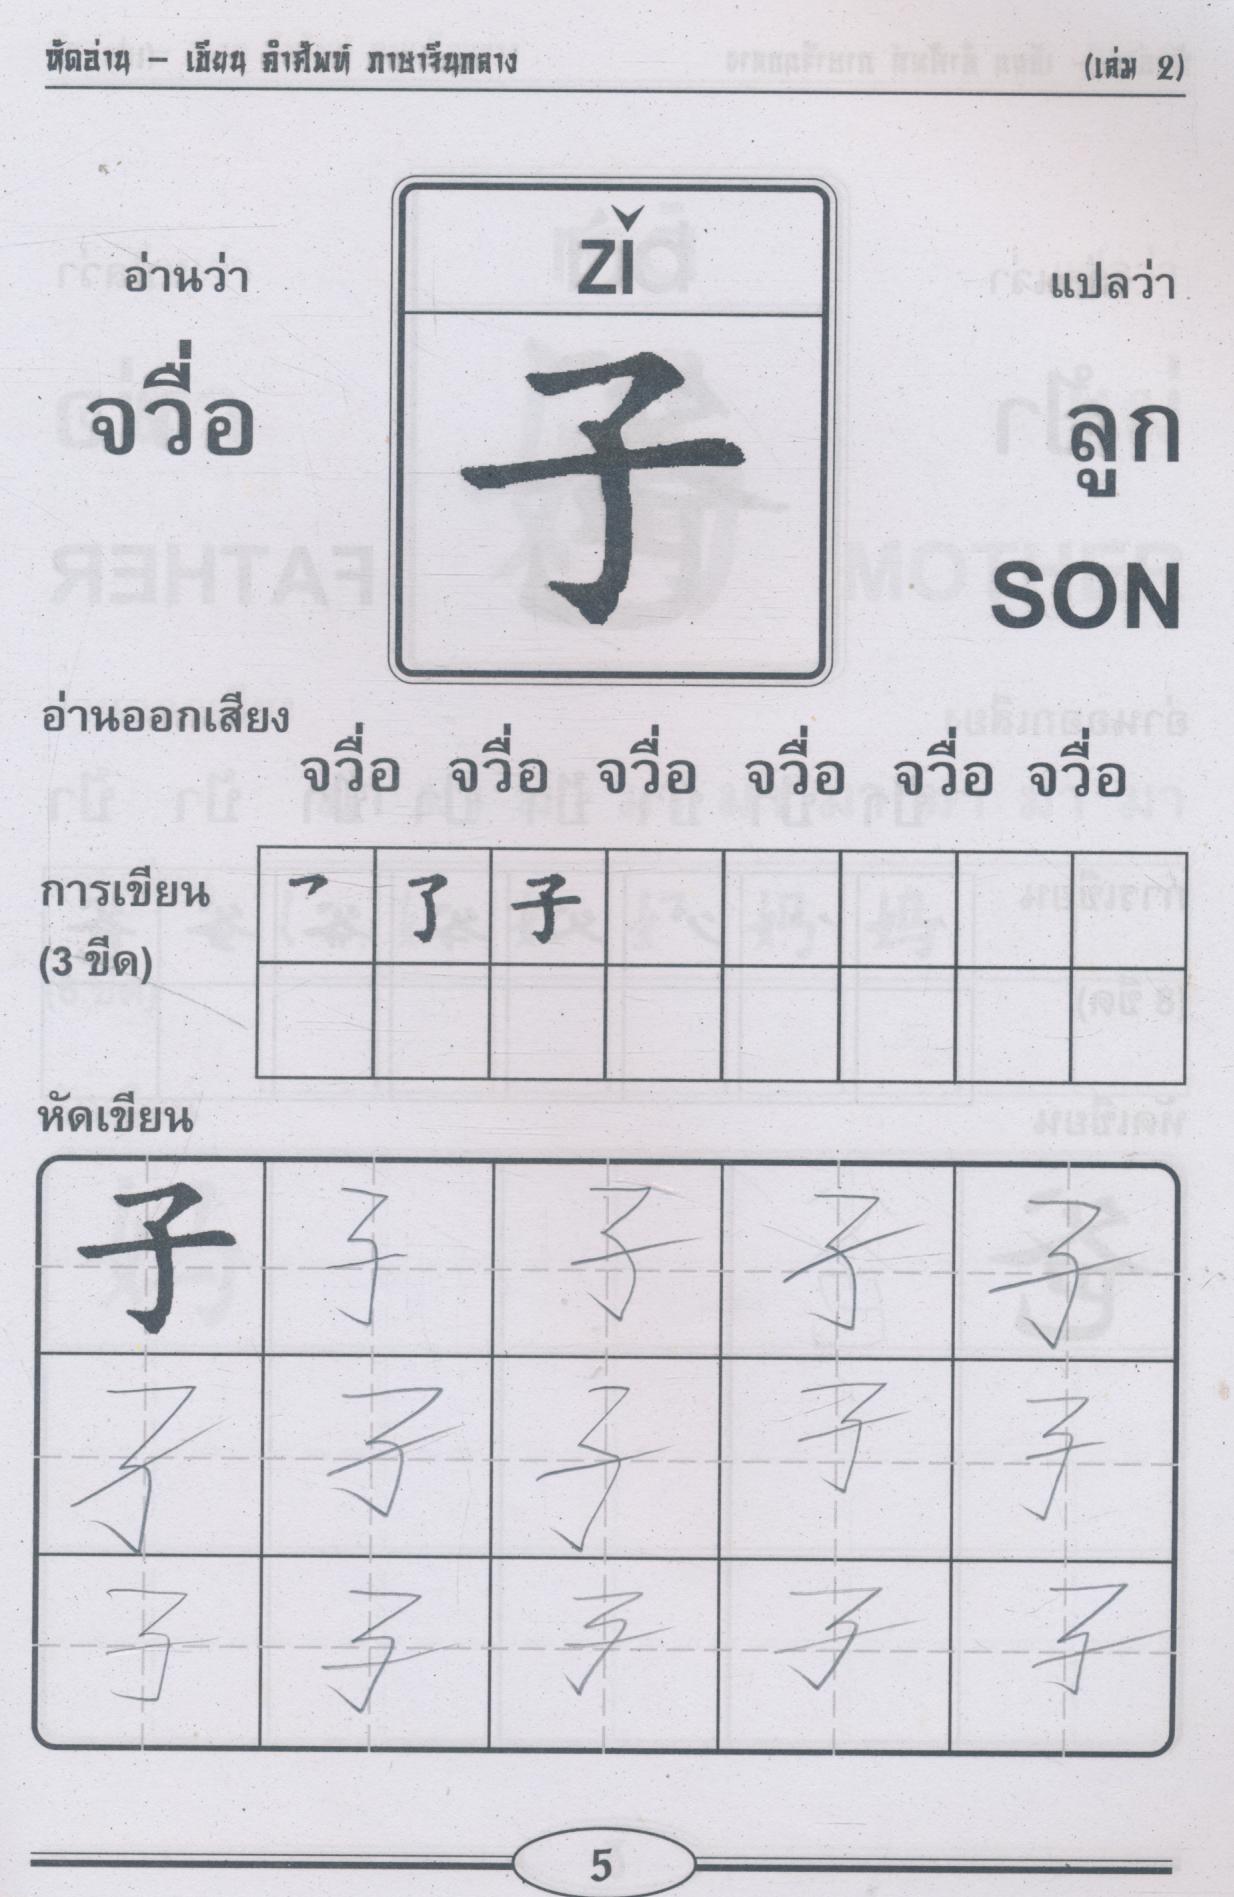 หัดอ่าน - เขียน คำศัพท์ ภาษาจีนกลาง (เล่ม 2)
zǐ
อ่านว่า
จวื่อ
子
แปลว่า
ลูก
SON
อ่านออกเสียง
จวื่อ จวื่อ จวื่อ จวื่อ จวื่อ จวื่อ
การเขียน
(3 ขีด)
乛 了 子
หัดเขียน
子 子 子 子 子
子 子 子 子 子
子 子 子 子 子
5